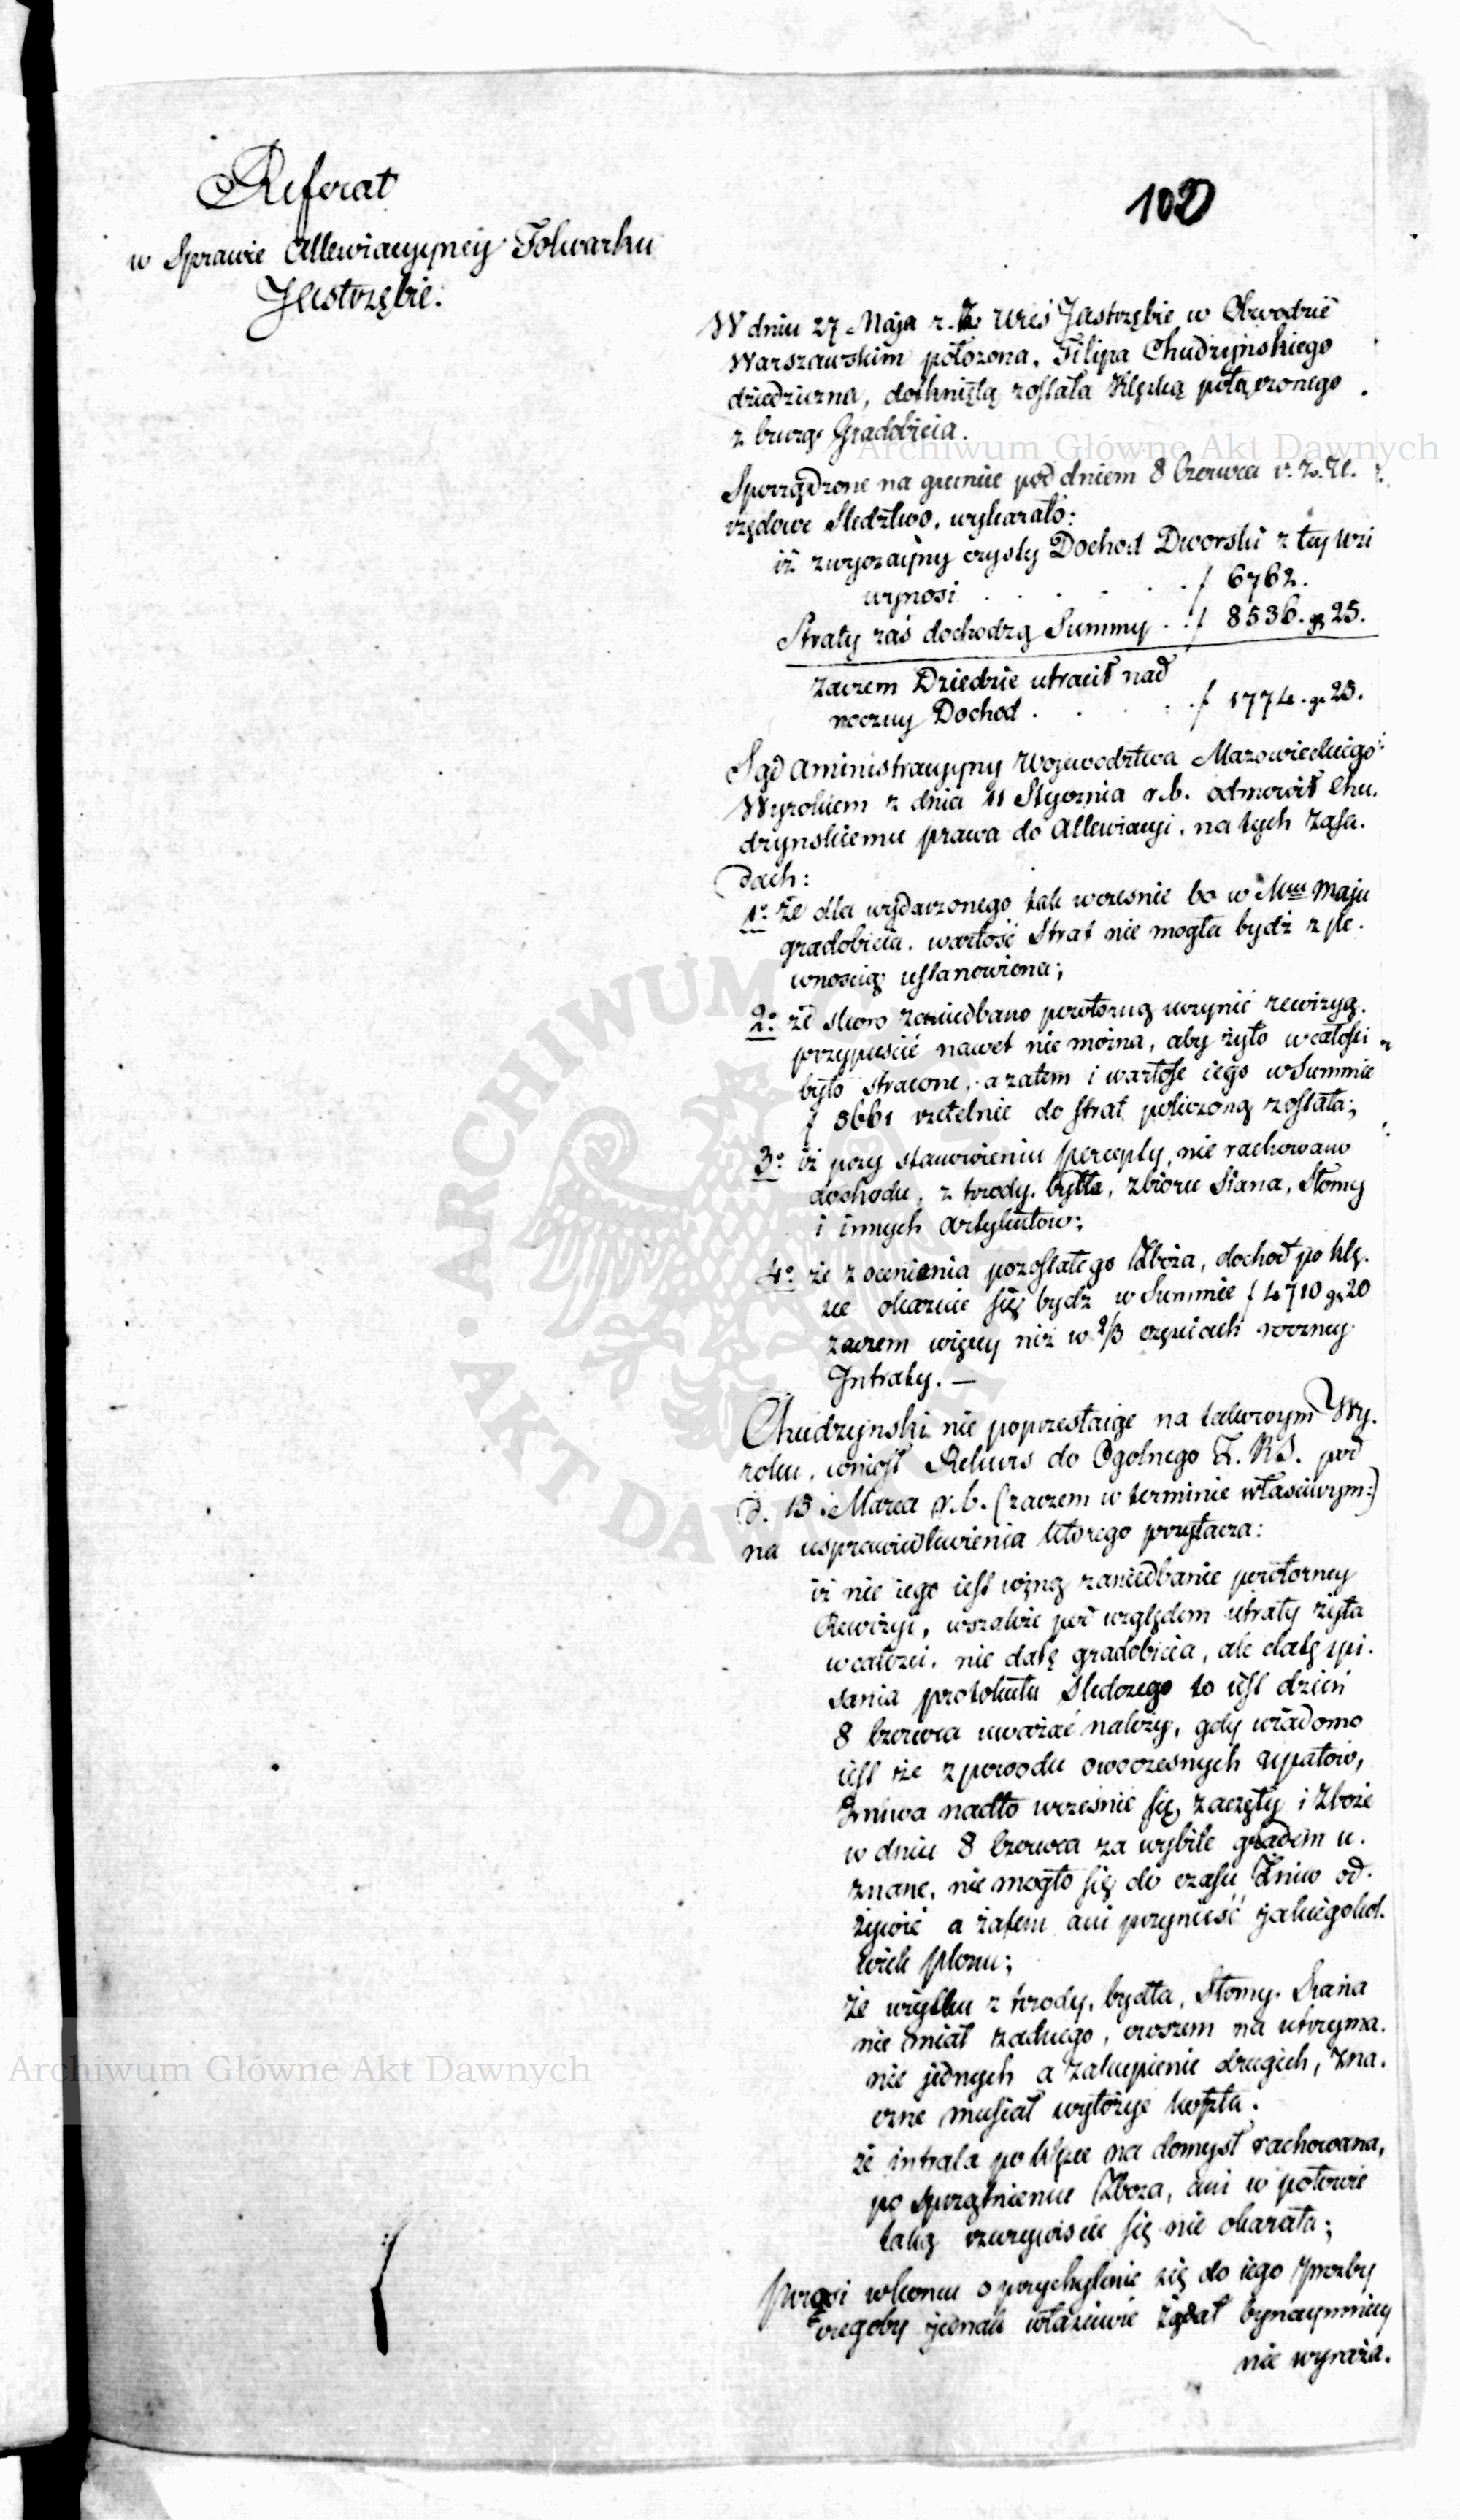 Referat
w Sprawie Allewiacyjney Folwarku
Jastrzębie.
102
W dniu 27 Maja r. z. Wieś Jastrzębie w Obwodzie
Warszawskim położona, Filipa Chudzyńskiego
dziedziczna, dotkniętą została klęską połączonego
z burzą Gradobicia.
Archiwum Główne Akt Dawnych
Sporządzone na gruncie pod dniem 8 Czerwca r. z. U.
rzędowe Sledztwo, wykazało:
iż zwyczajny czysty Dochod Dworski z tey Wsi
wynosi . . . . . f 6762.
Straty zaś dochodzą Summy . . f 8536. gr 25.
zaczem Dziedzic utracił nad
roczny Dochod . . . . f 1774. gr 25.
Sąd Aministracyjny Wojewodztwa Mazowieckiego
Wyrokiem z dnia 11 Stycznia r.b. odmowił Chu.
dzynskiemu prawa do Allewiacyi, na tych Zasa.
dach:
1o Że dla wydarzonego tak wczesnie bo w Mcu Maju
gradobicia, wartość Strat nie mogła bydź z pe.
wnością ustanowiona;
2o że skoro zaniedbano powtorną uczynić rewizyą,
przypuścić nawet nie można, aby żyto w całości
było stracone, a zatem i wartość iego w Summie
f 5661 rzetelnie do strat policzoną została;
3o iż przy stanowieniu percepty, nie rachowano
dochodu, z trzody, bydła, zbioru Siana, Słomy
i innych artykułow;
4o że z ocenienia pozostałego Zboża, dochod po klę.
sce okazuie się bydź w Summie f 4710 gr 20
zaczem więcey niż w 2/3 częściach roczney
Intraty. —
Chudzynski nie poprzestaiąc na takowym Wy.
roku, wniosł Rekurs do Ogolnego Z. RS. pod
d. 15 Marca r.b. (zaczem w terminie właściwym:)
na usprawiedliwienia ktorego przytacza:
iż nie iego iest winą zaniedbanie powtorney
Rewizyi, wszakże pod względem utraty żyta
w całości, nie datę gradobicia, ale datę spi.
sania protokułu śledczego to iest dzień
8 Czerwca uważać należy, gdy wiadomo
iest że z powodu owoczesnych upałow,
żniwa nadto wcześnie się zaczęły i Zboże
w dniu 8 Czerwca za wybite gradem u.
znane, nie mogło się do czasu Żniw od.
żywić a zatem ani przynieść jakiegokol.
wiek plonu;
że zysku z trzody, bydła, Słomy, Siana
nie miał żadnego, owszem na utrzyma.
nie jednych a zakupienie drugich, zna.
czne musiał wyłożyć koszta.
że intrata po klęsce na domysł rachowana,
po sprzątnieniu Zboża, ani w połowie
taką rzeczywiscie się nie okazała;
Prosi w końcu o przychylenie się do iego prozby
czegoby jednak właściwie żądał bynaymniey
nie wyraża.
Archiwum Główne Akt Dawnych
ARCHIWUM GŁÓWNE AKT DAWNYCH